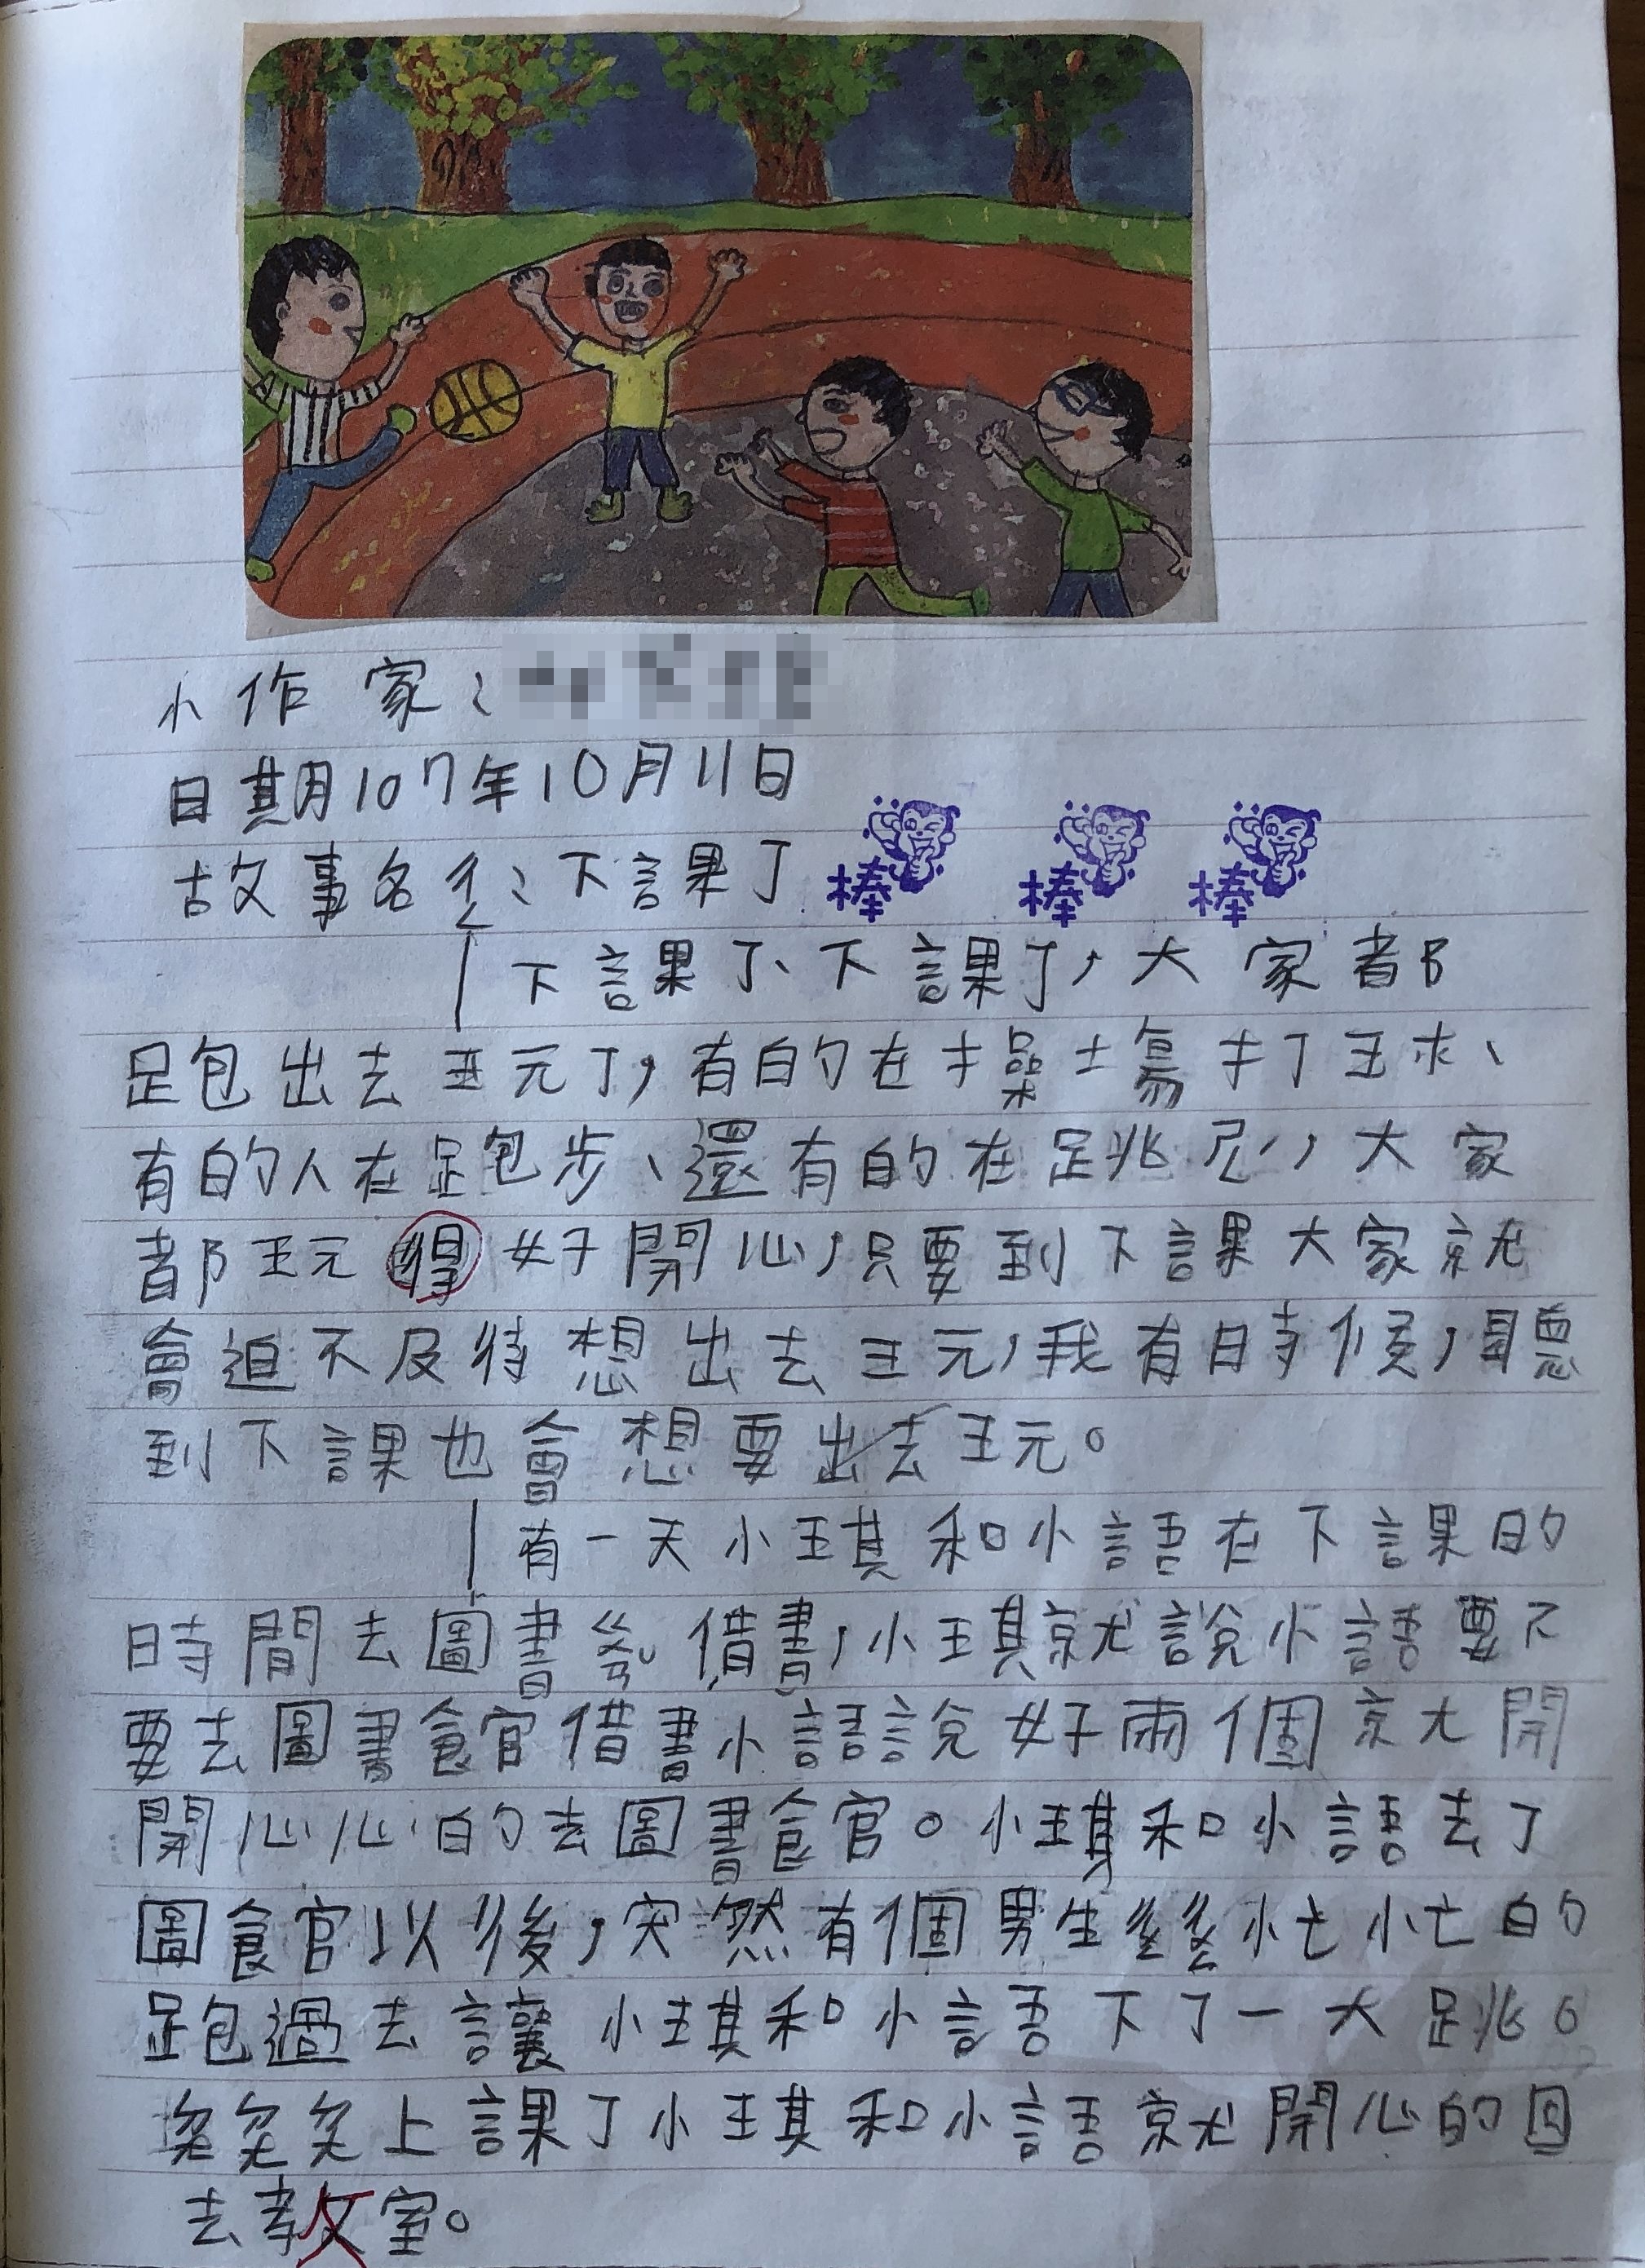 小作家：
日期107年10月11日
故事名名：下課了
棒 棒 棒
下課了、下課了，大家都
跑出去玩了，有的在操場打球、
有的人在跑步、還有的在跳ㄕㄥˊ，大家
都玩得好開心，只要到下課大家就
會迫不及待想出去玩，我有時候，聽
到下課也會想要出去玩。
有一天小琪和小語在下課的
時間去圖書 借書，小琪就說小語要不
要去圖書館借書小語說好兩個就開
開心心的去圖書館。小琪和小語去了
圖館以後，突然有個男生 忙忙的
跑過去讓小琪和小語下了一大跳。
上課了小琪和小語就開心的回
去教室。